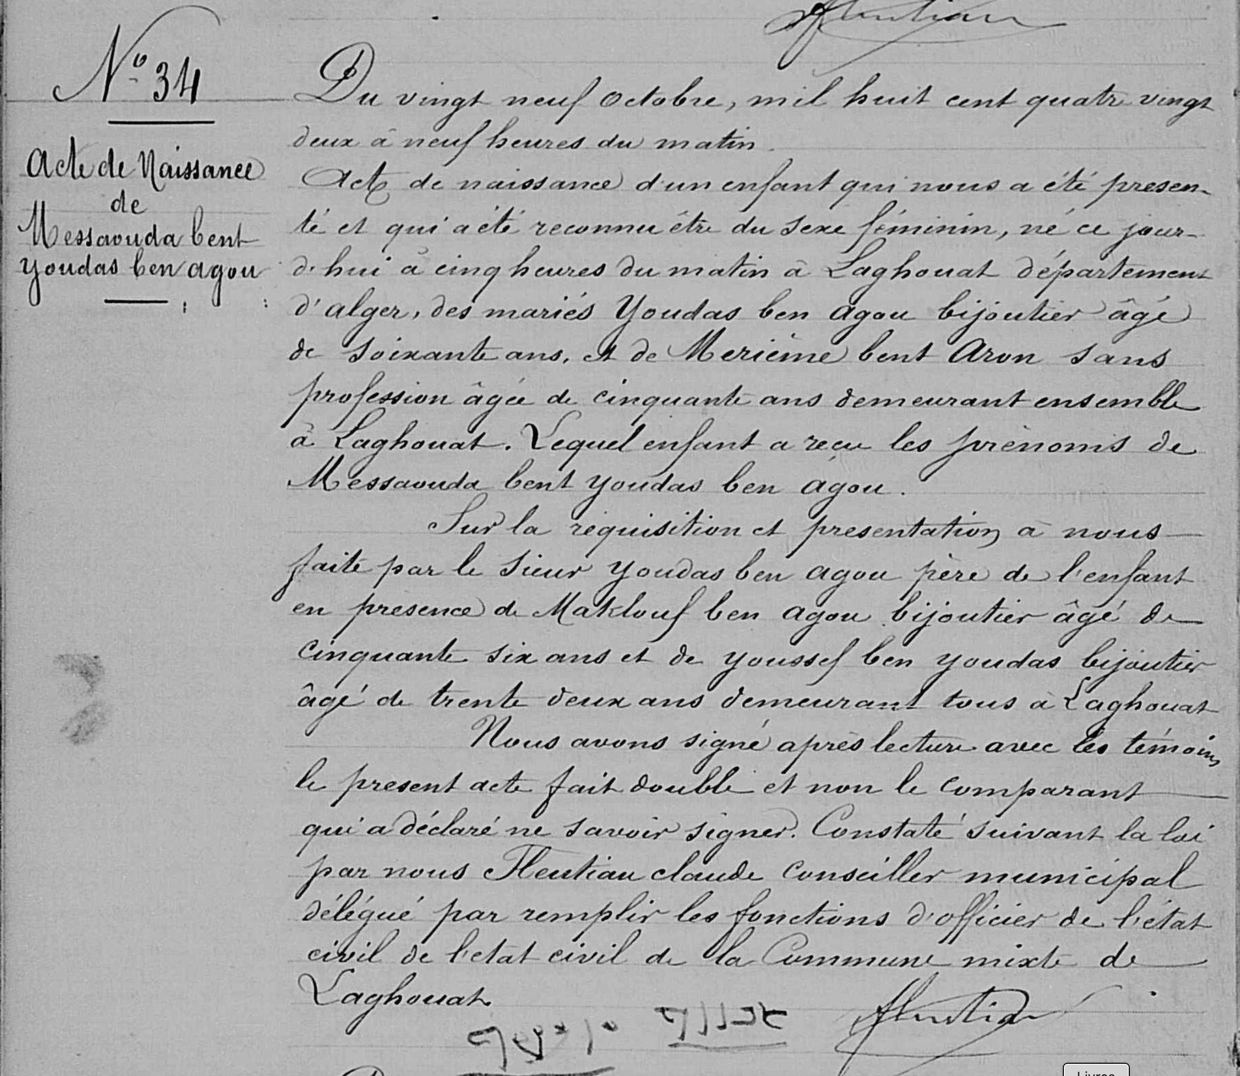 N° 34
Acte de Naissance
de
Messaouda bent
youdas ben agou
Du vingt neuf octobre, mil huit cent quatre vingt
deux à neuf heures du matin.
Acte de naissance d'un enfant qui nous a été présen-
té et qui a été reconnu être du sexe féminin, né ce jour-
d'hui à cinq heures du matin à Laghouat département
d'alger, des mariés Youdas ben agou bijoutier âgé
de soixante ans, et de Merième bent Aron sans
profession âgée de cinquante ans demeurant ensemble
à Laghouat. Lequel enfant a reçu les prénoms de
Messaouda bent youdas ben agou.
Sur la réquisition et présentation à nous
faite par le sieur youdas ben agou père de l'enfant
en présence de Maklouf ben agou bijoutier âgé de
cinquante six ans et de youssef ben youdas bijoutier
âgé de trente deux ans demeurant tous à Laghouat
Nous avons signé après lecture avec les témoins
le présent acte fait double et non le comparant
qui a déclaré ne savoir signer. Constaté suivant la loi
par nous Fleutiau claude conseiller municipal
délégué par remplir les fonctions d'officier de l'état
civil de l'état civil de la Commune mixte de
Laghouat
fleutiau
Livres